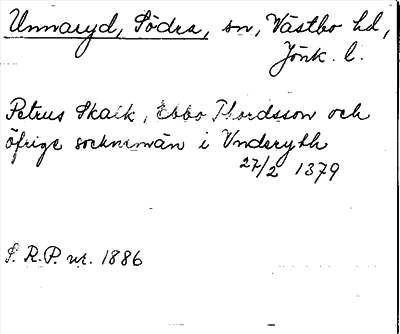 Unnaryd, Södra, sn, Västbo hd,
Jönk. l.
Petrus Skaik, Ebbo Thordsson och
öfrige socknemän i Vnderythh
27/2 1379
S. R. P. nr. 1886